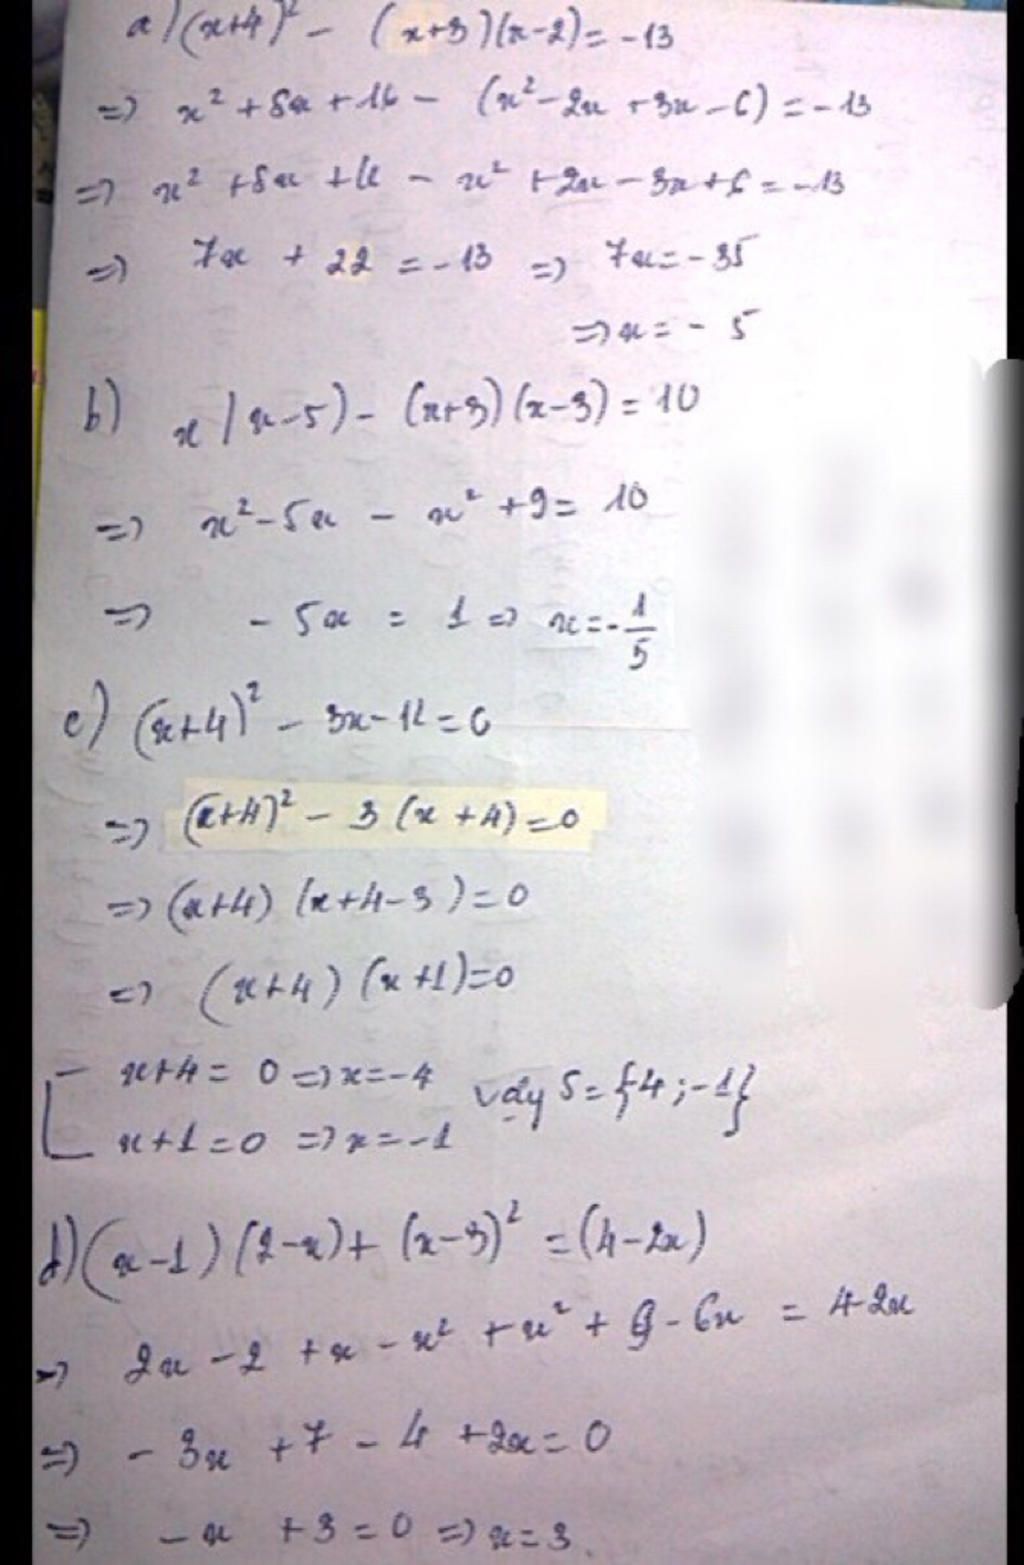 a) (x+4)² - (x+3)(x-2) = -13
=> x² + 8x + 16 - (x² - 2x + 3x - 6) = -13
=> x² + 8x + 16 - x² + 2x - 3x + 6 = -13
=> 7x + 22 = -13 => 7x = -35
=> x = -5
b) x(x-5) - (x+3)(x-3) = 10
=> x² - 5x - x² + 9 = 10
=> -5x = 1 => x = -1/5
c) (x+4)² - 3x - 12 = 0
=> (x+4)² - 3(x+4) = 0
=> (x+4)(x+4-3) = 0
=> (x+4)(x+1) = 0
x+4 = 0 => x = -4
x+1 = 0 => x = -1
vậy S = {-4; -1}
d) (x-1)(2-x) + (x-3)² = (4-2x)
=> 2x - 2 + x - x² + x² + 9 - 6x = 4-2x
=> -3x + 7 - 4 + 2x = 0
=> -x + 3 = 0 => x = 3.